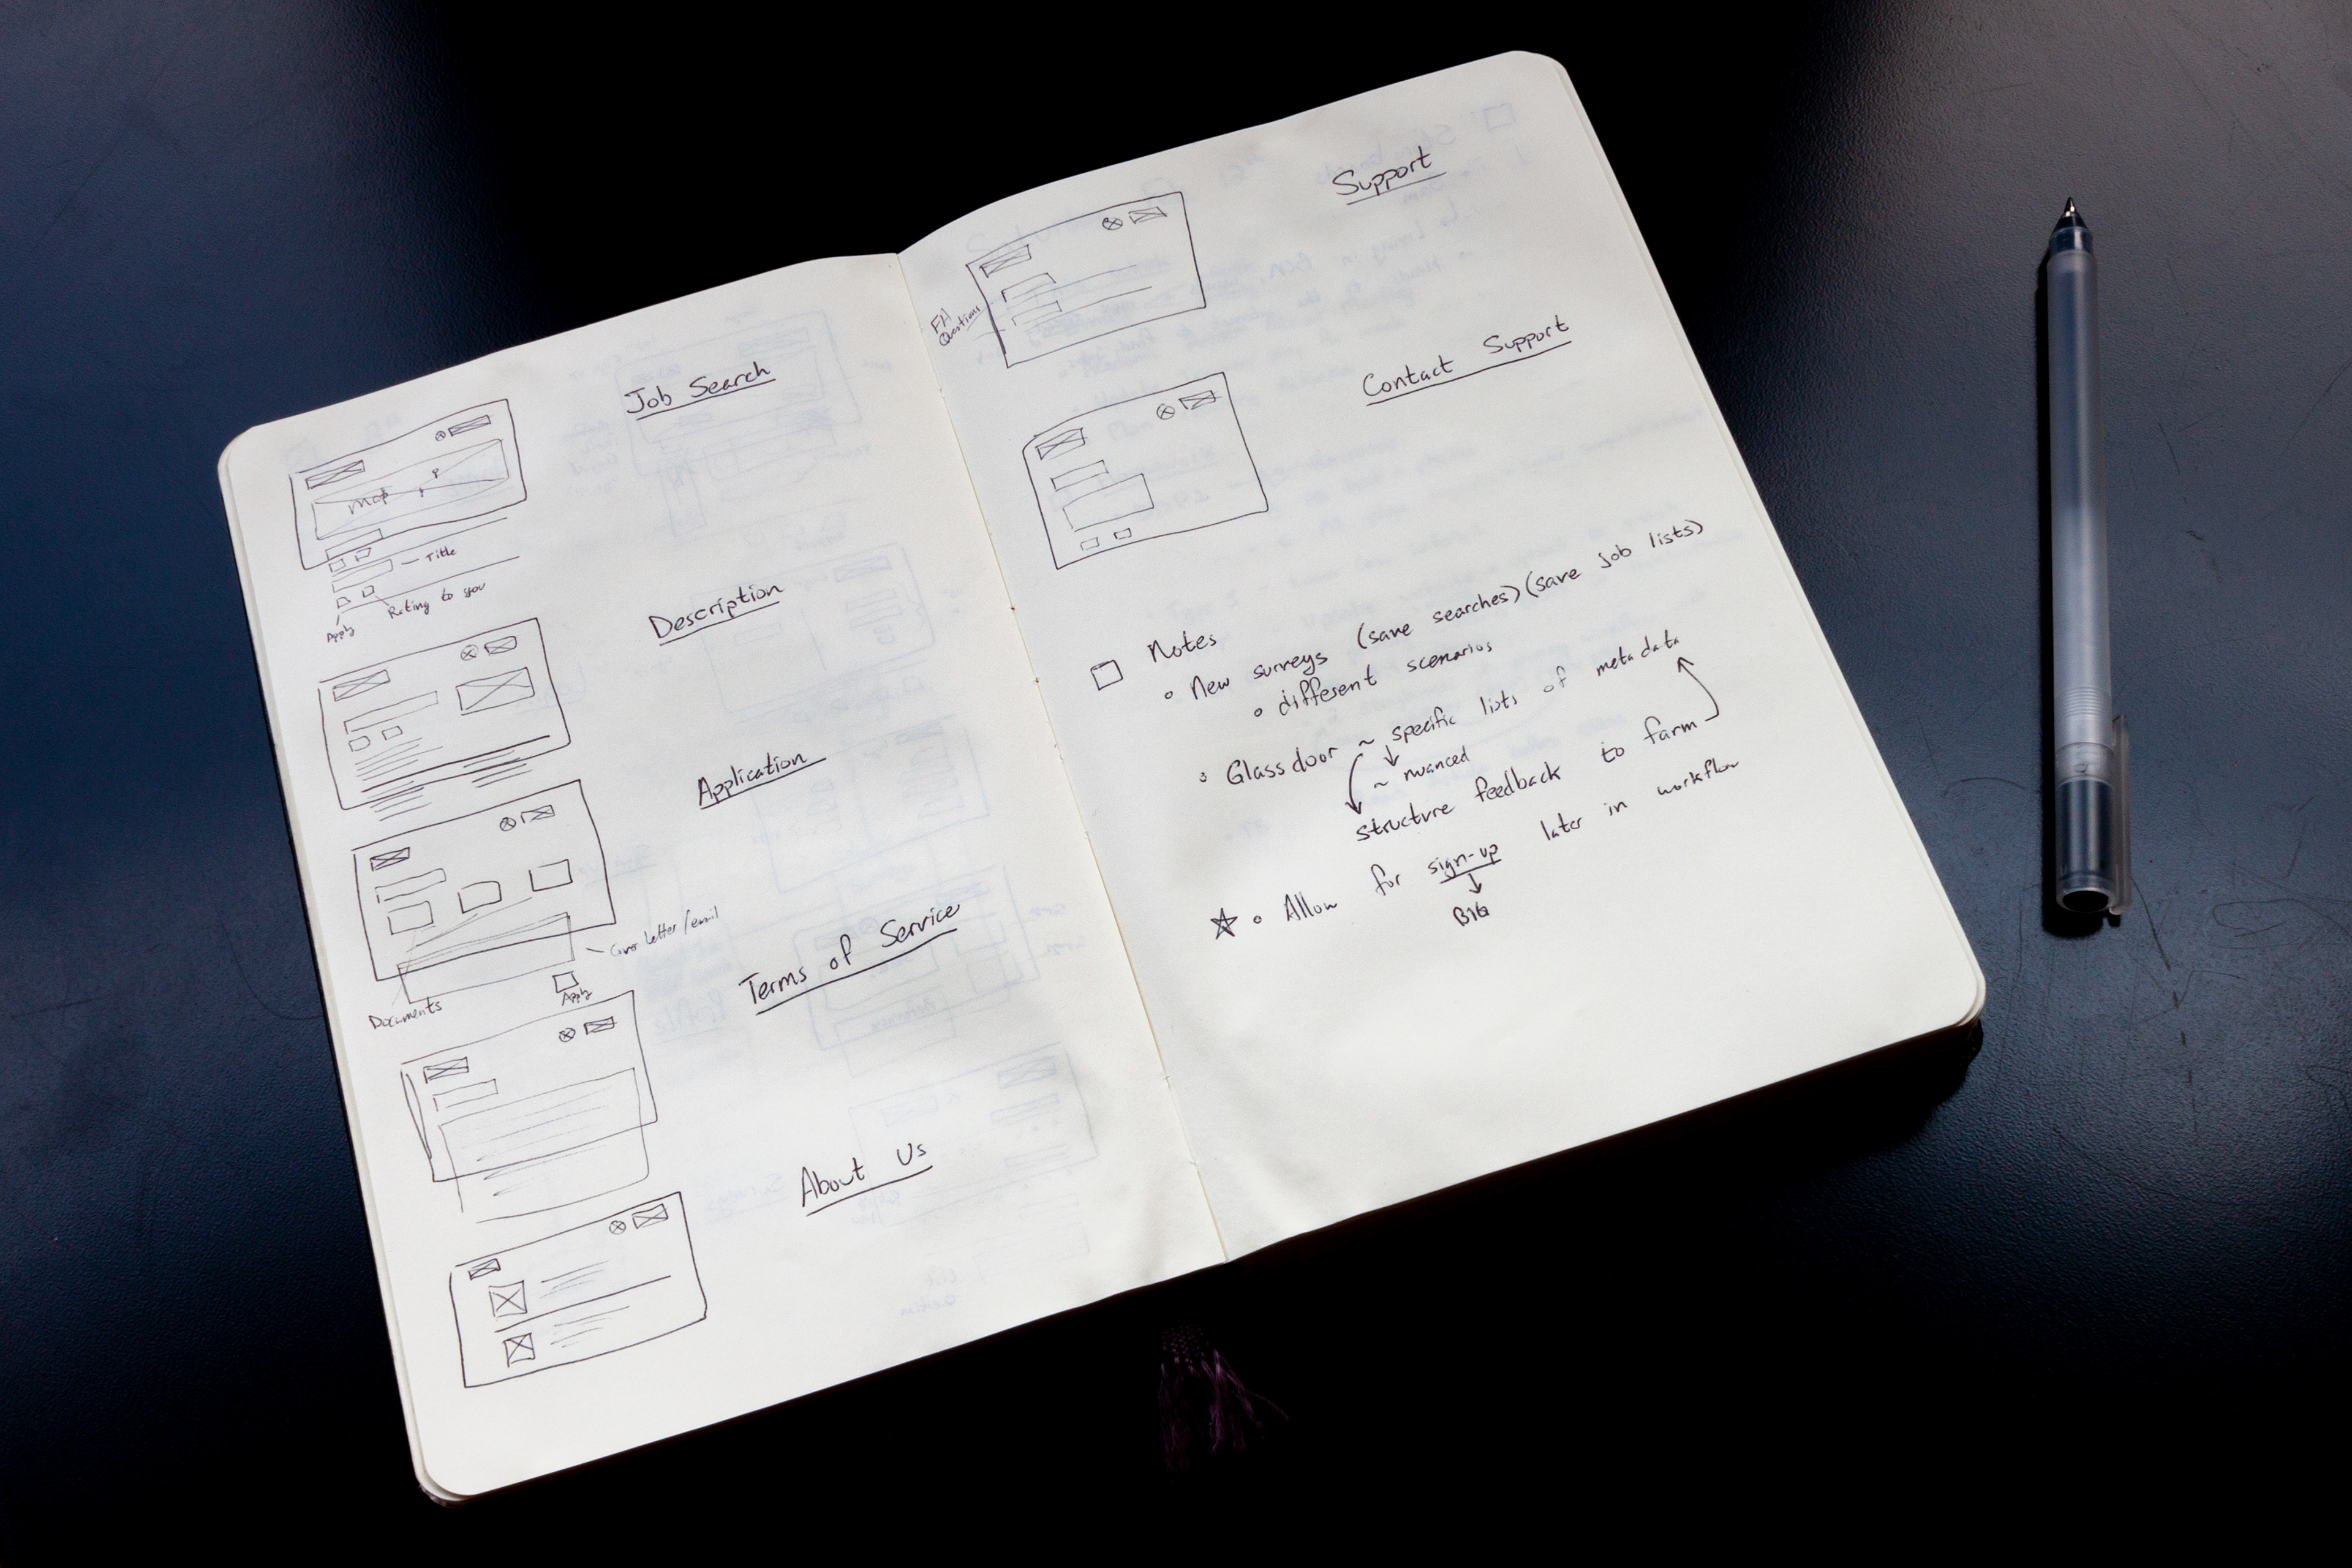 Job Search
map
Title
Rating to you
Apply
Description
Application
Cover letter/email
Apply
Documents
Terms of Service
About Us
Support
Questions
Contact Support
Notes
New surveys (save searches) (save job lists)
different scenarios
Glassdoor ~ specific lists of metadata
~ nuanced
structure feedback to farm
Allow for sign-up later in workflow
BIG